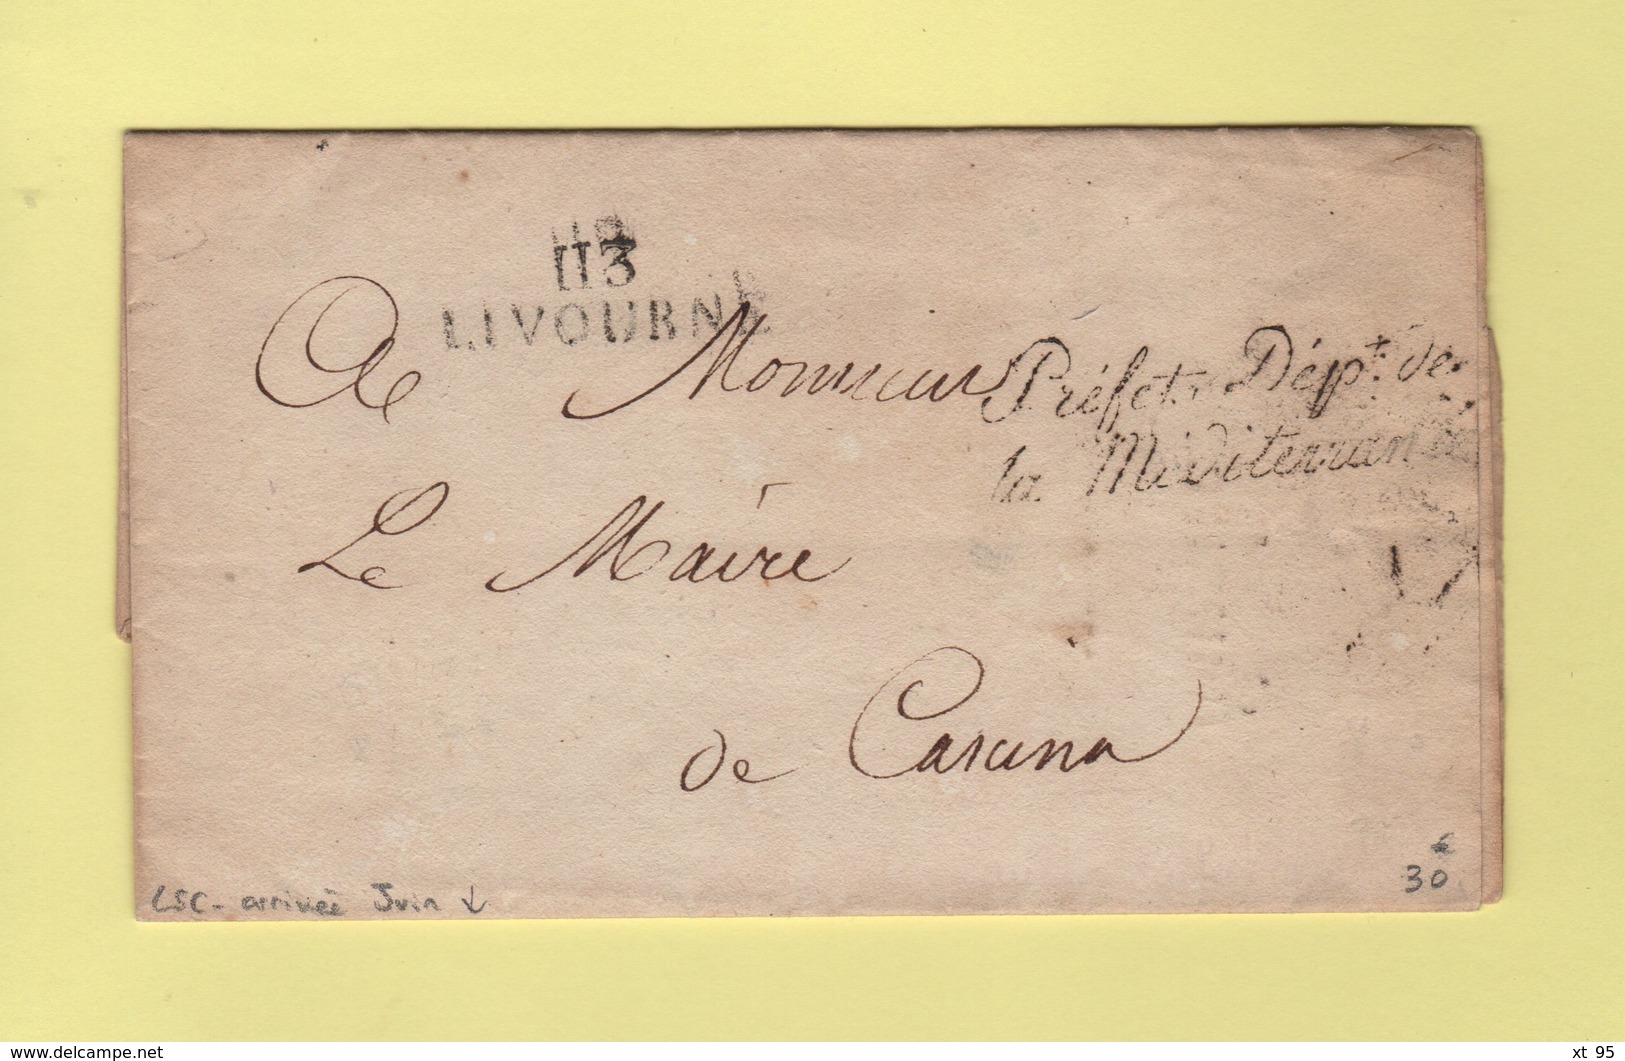 113
LIVOURNE
A Monsieur
Préfet Dépt. de
la Méditerranée
Le Maire
de Cascina
€
30
LSC - arrivée Juin ↓
www.delcampe.net
xt 95